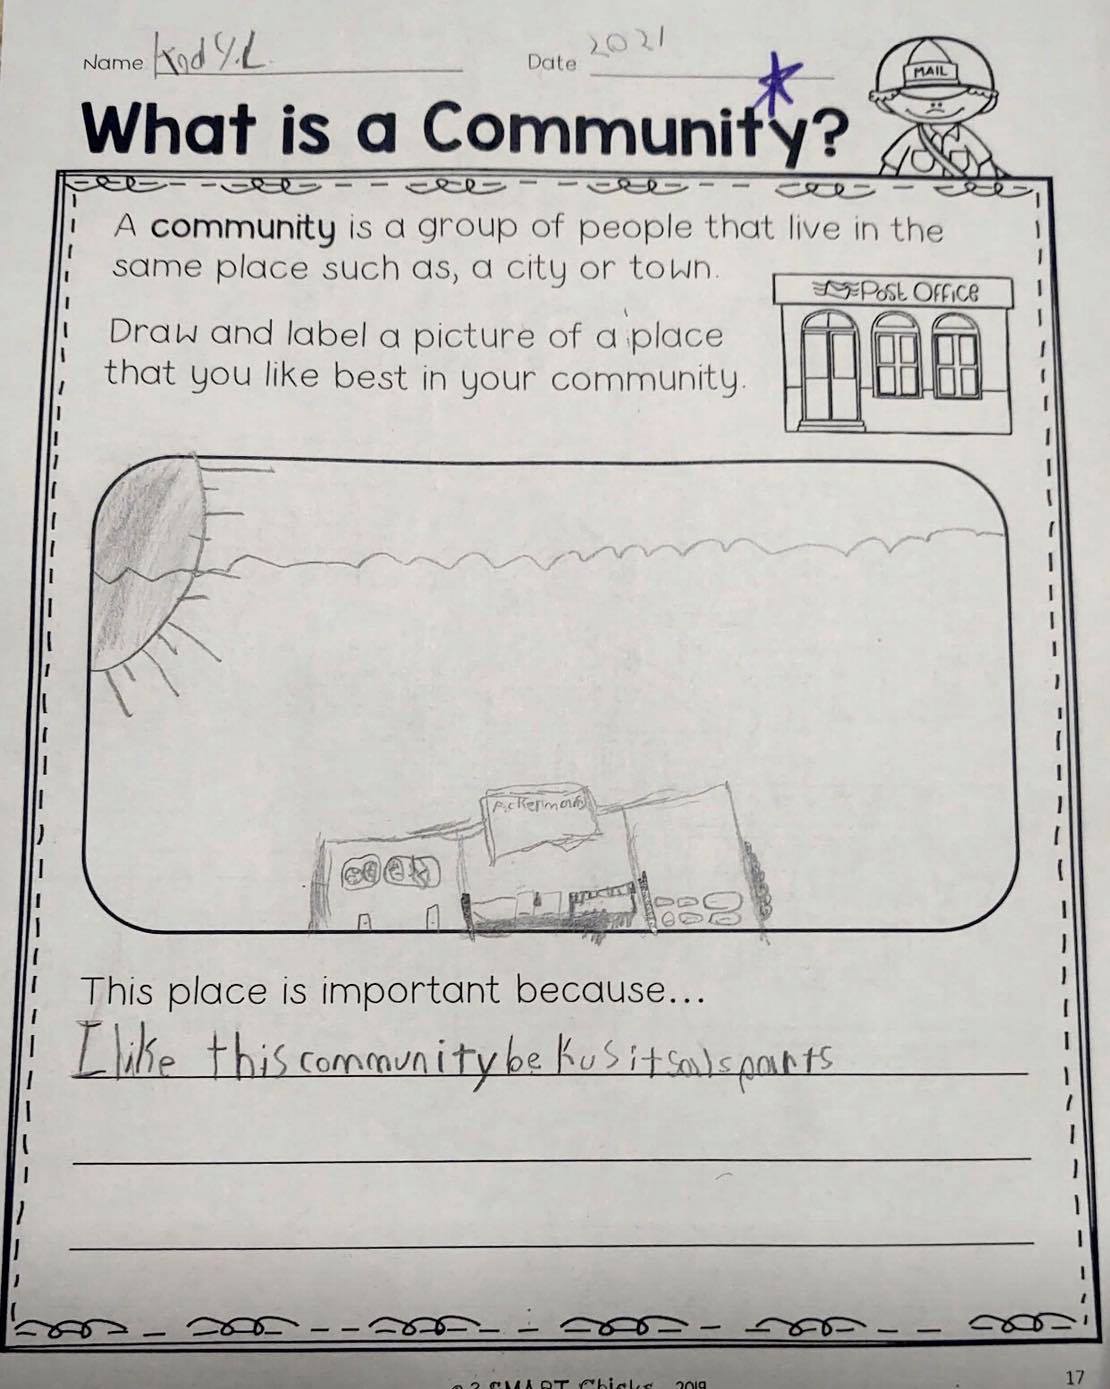 Name
Date 2021
MAIL
What is a Community?
A community is a group of people that live in the
same place such as, a city or town.
Post Office
Draw and label a picture of a place
that you like best in your community.
This place is important because...
I like this community be kus it
17
2019